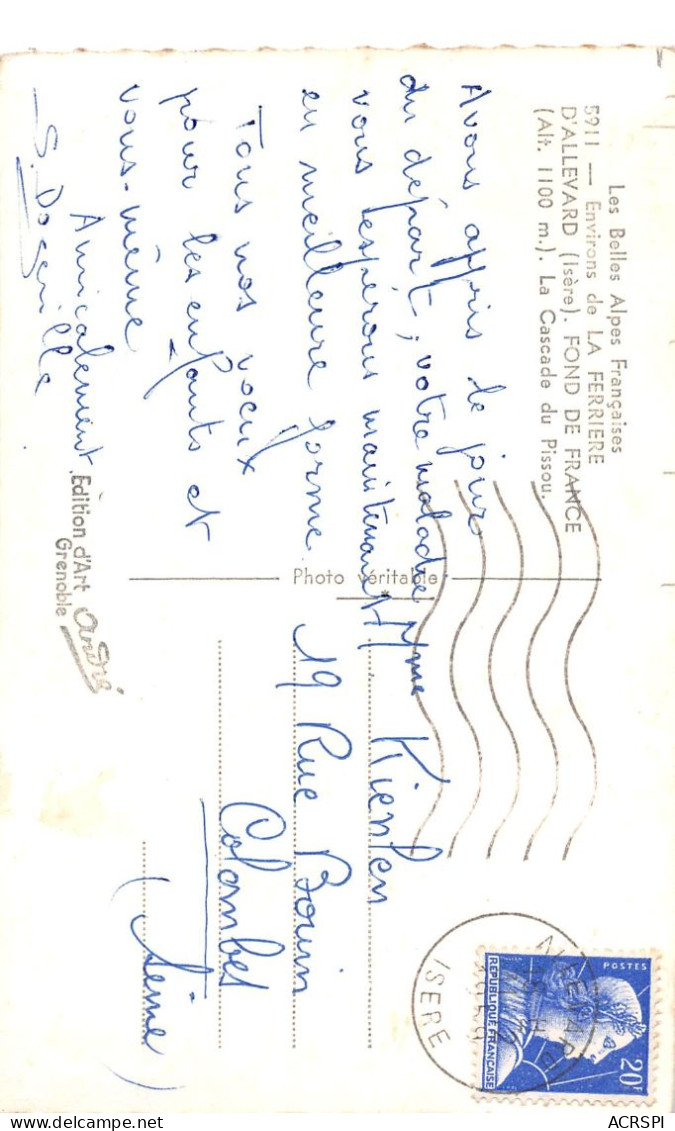 Les Belles Alpes Françaises
5911 — Environs de LA FERRIERE
D'ALLEVARD (Isère). FOND DE FRANCE
(Alt. 1100 m.). La Cascade du Pissou.
Avons appris le jour
du départ, votre maladie
vous espérons maintenant
en meilleure forme.
Tous nos voeux
pour les enfants et
vous-même
Amicalement
Edition d'Art André
Grenoble
Photo véritable
Mme Kienlen
19 Rue Bouin
Colombes
(Seine)
POSTES
20F
REPUBLIQUE FRANÇAISE
ISERE
ACRSPI